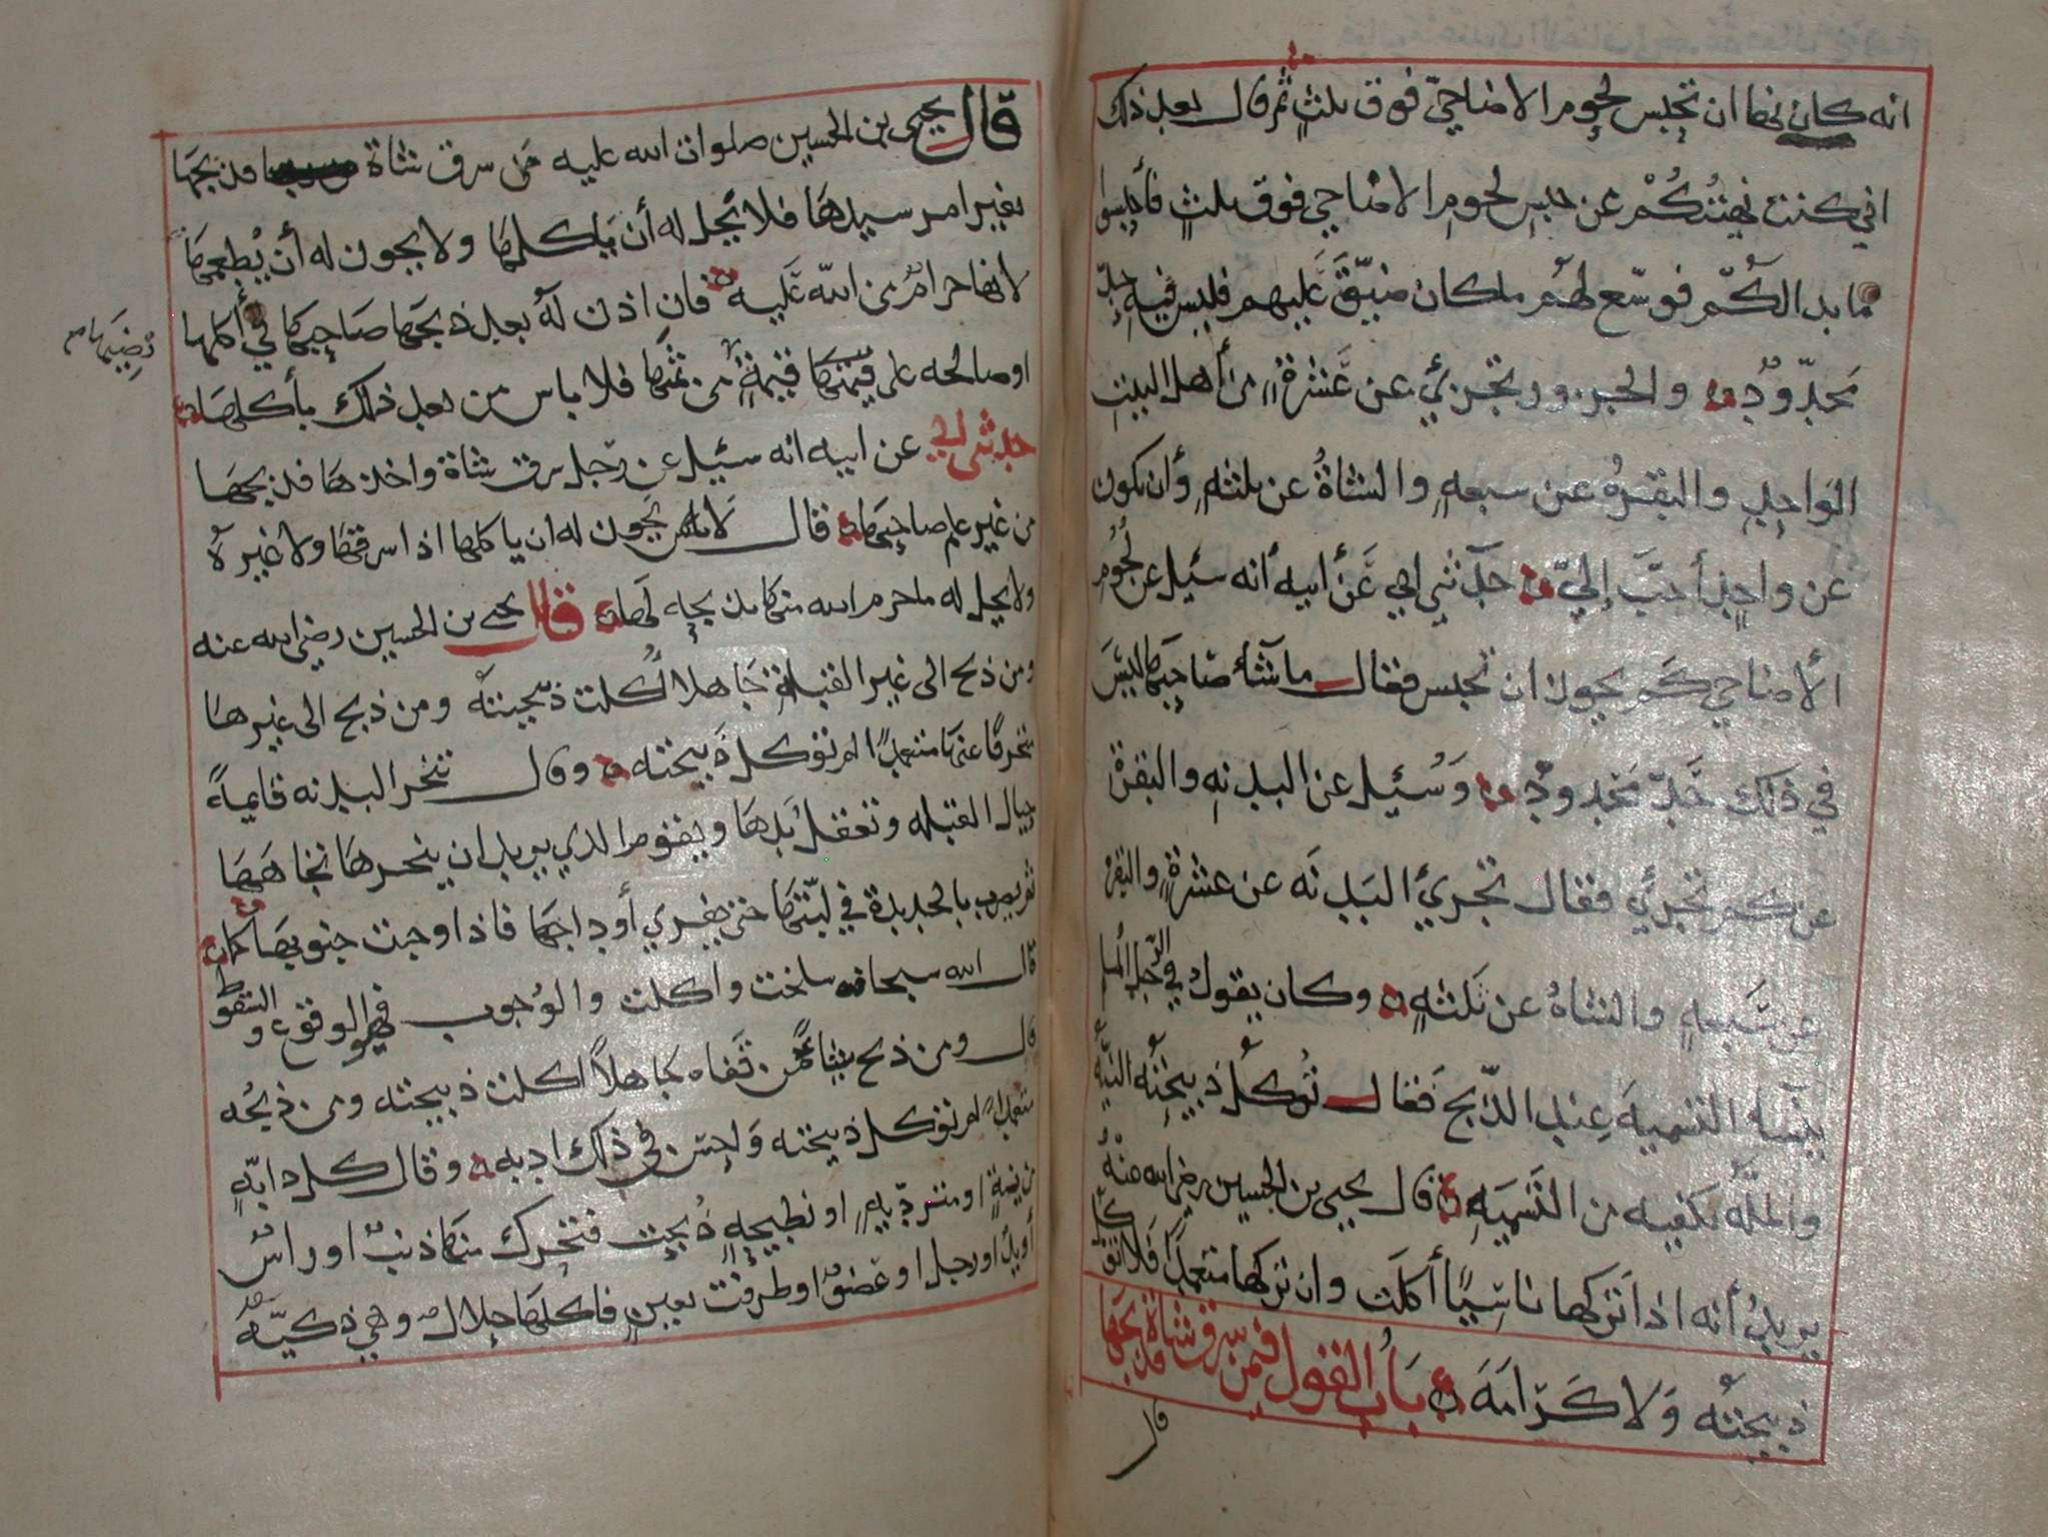 انه كان نها ان تحبس لحوم الاضاحيّ فوق ثلثٍ ثم قال بعد ذلك
اني كنت نهيتُكُمْ عن حبسِ لحوم الاضاحي فوق ثلثٍ فأحبسوا
ما بدا لكُمْ فوسّع لهم ما كان ضيّق عَليهم فليس فيهِ حدّ
مَحدّودٌ والجزور تجزيُ عن عَشرةٍ من أهل البيتِ
الوَاحِدِ والبقرهُ عن سبعهٍ والشاةُ عن ثلثهٍ وأن تكون
عن واحدٍ أحبَّ إليّ حَدّثني ابي عَن أبيه أنه سئيل عن لحُوم
الأضاحي كم يجوز ان تحبس فقال ما شآء صَاحبهَا ليسَ
في ذلك حَدّ مَحدودٌ وَسُئيل عن البدنهِ والبقرة
عن كم تجزئ فقال تجزئ البَدنَه عن عشرةٍ والبقره
عن سَبعهٍ والشاهُ عن ثلثهٍ وكان يقول في الرّجل المسلم
ينسا التسميهَ عِند الذّبح فقال تُوكلُ ذبيحتُه النيّه
والملّهُ تكفيه من التسَميَهِ قال يحيى بن الحسين رضي الله عنهُ
يريدُ أنه اذا تركها ناسِيًا أكلت وان تركها متعمداً فلا توكل
ذبيحتُه وَلا كرَامَهَ بَابُ القول فيمن سرق شاةً فذبحها
قال
قال يحيى بن الحسين صلوات الله عليه من سرق شاة فذبحها
بغير امر سيدهَا فلا يحل له أن يَاكلهَا ولا يجوز له أن يُطعمهَا
لانها حرامٌ من الله عَليه فان اذن لهُ بعد ذبحهَا صَاحبهَا في أكلها
او صالحه على قيمتهَا قيمةٍ من ثمنهَا فلا باس من بعد ذلك بأكلهَا
حدثني ابي عن ابيه انه سئيل عن رّجل سرق شاة واخذهَا فذبحهَا
من غير علم صاحبهَا فقال لا يَجوز له ان ياكلها اذا سرقهَا ولا غيره
ولا يحل له ما حرم الله منهَا بذبحه لهَا قال يحيى بن الحسين رضي الله عنه
ومن ذبح الى غير القبلة جَاهلا أكلت ذبيحتهُ ومن ذبح الى غيرها
منحرفًا عنهَا متعمداً لم توكل ذَبيحته وقال تنحر البدنه قايمةً
حيال القبله وتعقل يدهَا ويقوم الذي يريد ان ينحرهَا تجاهَهَا
ثم يضرب بالحديدة في لبّتهَا حتى يفري أوداجهَا فاذا وجبت جنوبهَا كما
قال الله سبحانه سلخت واكلت والوُجوب فهو الوقوع والسقوط
قال ومن ذبح شاةً من قفاه جاهلاً اكلت ذبيحته ومن ذبحُه
متعمداً لم توكل ذبيحته وَاحسن في ذلك ادبه وقال كل دابّهٍ
مريضةٍ او متردّيهٍ او نطيحهٍ ذُبحت فتحرك منهَا ذنبٌ او راسٌ
أو يدٌ او رجل او عَضوٌ او طرفت بعينٍ فاكلهَا حلالٌ وهي ذكيّه